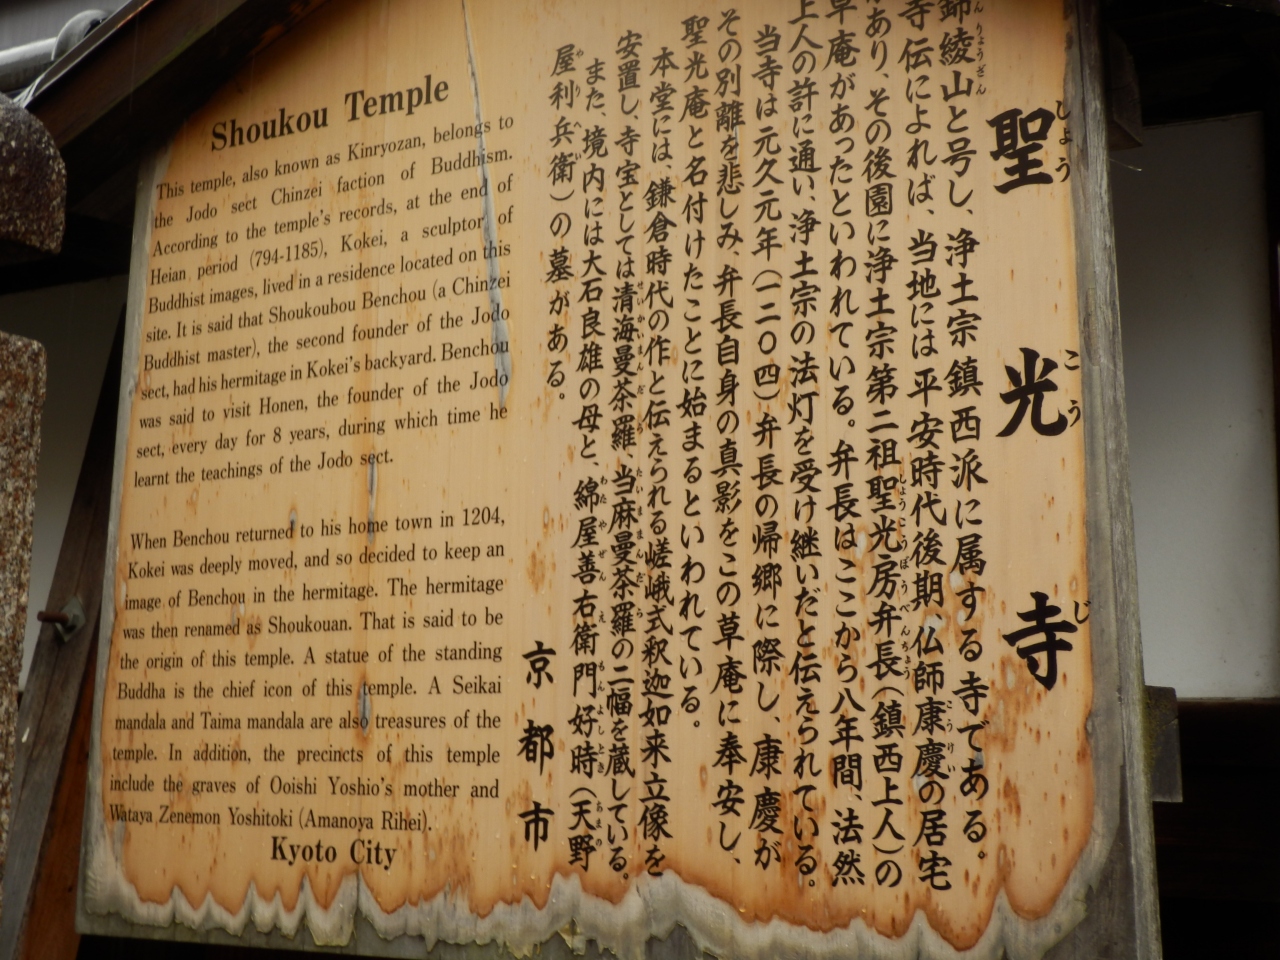 Shoukou Temple
This temple, also known as Kinryozan, belongs to
the Jodo sect Chinzei faction of Buddhism.
According to the temple's records, at the end of
Heian period (794-1185), Kokei, a sculptor of
Buddhist images, lived in a residence located on this
site. It is said that Shoukoubou Benchou (a Chinzei
Buddhist master), the second founder of the Jodo
sect, had his hermitage in Kokei's backyard. Benchou
was said to visit Honen, the founder of the Jodo
sect, every day for 8 years, during which time he
learnt the teachings of the Jodo sect.
When Benchou returned to his home town in 1204,
Kokei was deeply moved, and so decided to keep an
image of Benchou in the hermitage. The hermitage
was then renamed as Shoukouan. That is said to be
the origin of this temple. A statue of the standing
Buddha is the chief icon of this temple. A Seikai
mandala and Taima mandala are also treasures of the
temple. In addition, the precincts of this temple
include the graves of Ooishi Yoshio's mother and
Wataya Zenemon Yoshitoki (Amanoya Rihei).
Kyoto City
聖光寺
しょうこうじ
錦綾山と号し、浄土宗鎮西派に属する寺である。
寺伝によれば、当地には平安時代後期、仏師康慶の居宅
があり、その後園に浄土宗第二祖聖光房弁長（鎮西上人）の
草庵があったといわれている。弁長はここから八年間、法然
上人の許に通い、浄土宗の法灯を受け継いだと伝えられている。
当寺は元久元年（一二〇四）弁長の帰郷に際し、康慶が
その別離を悲しみ、弁長自身の真影をこの草庵に奉安し、
聖光庵と名付けたことに始まるといわれている。
本堂には、鎌倉時代の作と伝えられる嵯峨式釈迦如来立像を
安置し、寺宝としては清海曼荼羅、当麻曼荼羅の二幅を蔵している。
また、境内には大石良雄の母と、綿屋善右衛門好時（天野
屋利兵衛）の墓がある。
京都市